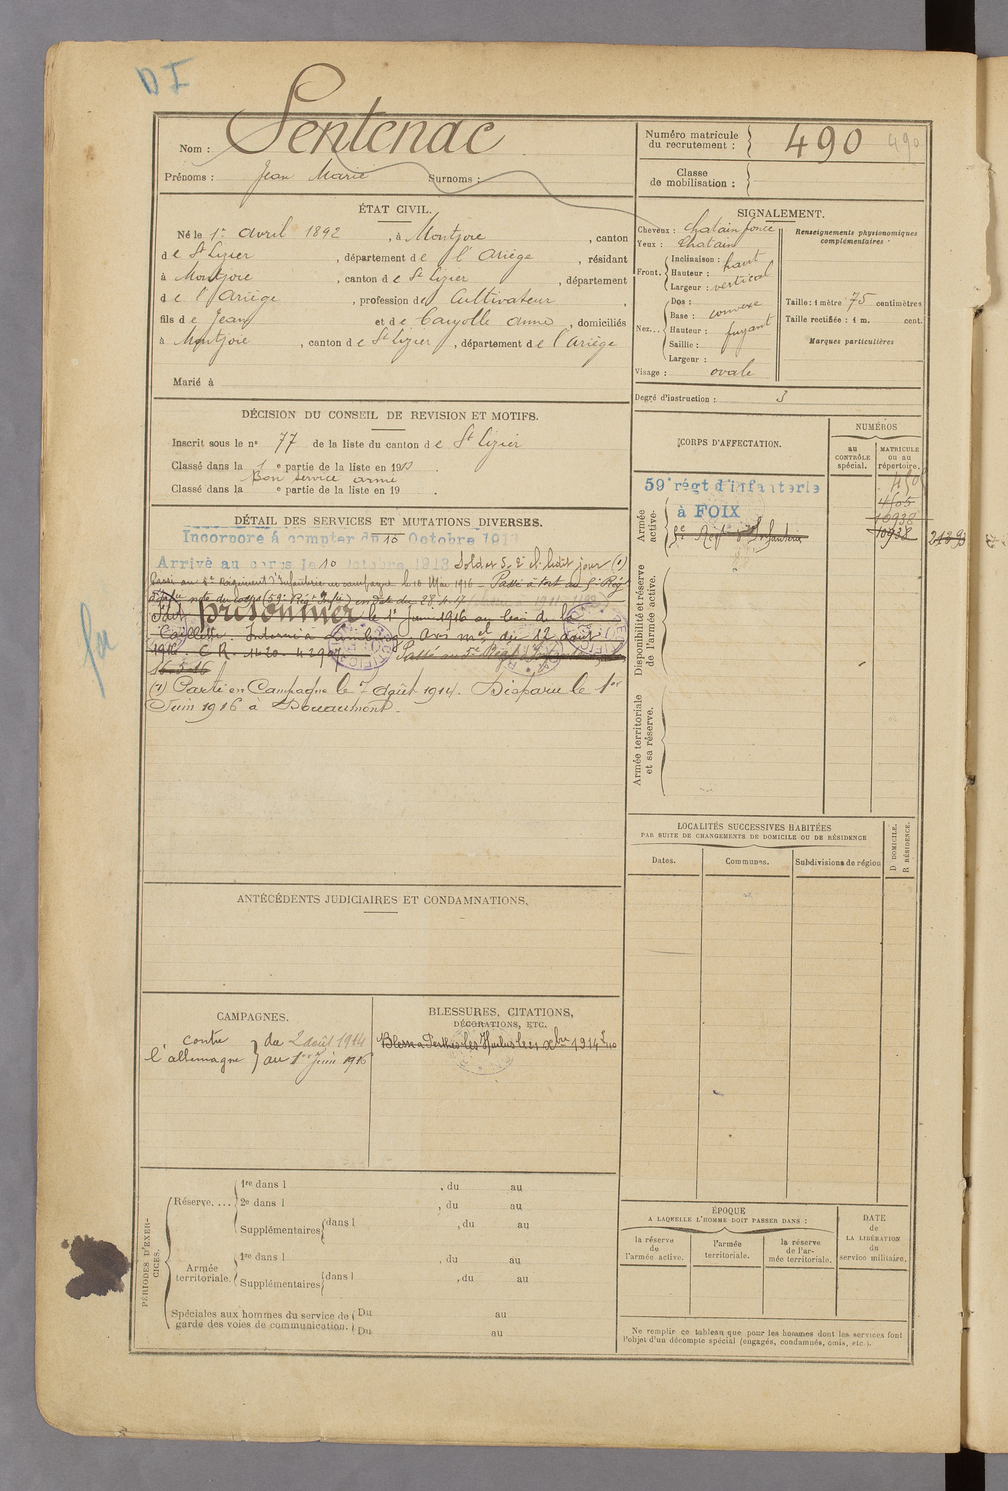 DI
Nom : Sentenac
Prénoms : Jean Marie Surnoms :
Numéro matricule du recrutement : 490 490
Classe de mobilisation :
ÉTAT CIVIL.
Né le 1er avril 1892, à Montjoie, canton
de St Lizier, département de l'Ariège, résidant
à Montjoie, canton de St Lizier, département
de l'Ariège, profession de Cultivateur,
fils de Jean et de Cayolle Anne, domiciliés
à Montjoie, canton de St Lizier, département de l'Ariège
Marié à
SIGNALEMENT.
Cheveux : chatain foncé
Yeux : chatain
Front. Inclinaison : haut
Hauteur :
Largeur : vertical
Nez... Dos :
Base : convexe
Hauteur : fuyant
Saillie :
Largeur :
Visage : ovale
Renseignements physionomiques complémentaires :
Taille : 1 mètre 75 centimètres
Taille rectifiée : 1 m. cent.
Marques particulières
Degré d'instruction : 3
DÉCISION DU CONSEIL DE REVISION ET MOTIFS.
Inscrit sous le no 77 de la liste du canton de St Lizier
Classé dans la 1e partie de la liste en 1913.
Bon service armé
Classé dans la e partie de la liste en 19 .
DÉTAIL DES SERVICES ET MUTATIONS DIVERSES.
Incorporé à compter du 10 Octobre 1913
Arrivé au corps le 10 Octobre 1913 Soldat de 2e cl. ledit jour (1)
Passé au 5e Régiment d'Infanterie en campagne le 16 Mai 1916 Passé à tort au 5e Rég
Fait prisonnier le 1er Juin 1916 au bois de la
Caillette. Interné à Limburg. Avis du 12 août
1916. C.R. Passé au 5e Régt d'Infanterie
16-5-16
(1) Parti en Campagne le 7 Août 1914. Disparu le 1er
Juin 1916 à Douaumont.
CORPS D'AFFECTATION.
NUMÉROS
au CONTRÔLE spécial.
MATRICULE ou au répertoire.
Armée active.
59e régt d'infanterie
à FOIX
5e Régt d'Infanterie
4405
10938
10938
Disponibilité et réserve de l'armée active.
Armée territoriale et sa réserve.
LOCALITÉS SUCCESSIVES HABITÉES
PAR SUITE DE CHANGEMENTS DE DOMICILE OU DE RÉSIDENCE
Dates.
Communes.
Subdivisions de région
D DOMICILE.
R RÉSIDENCE.
ANTÉCÉDENTS JUDICIAIRES ET CONDAMNATIONS.
CAMPAGNES.
contre l'allemagne } du 2 août 1914
au 1er Juin 1916
BLESSURES, CITATIONS,
DÉCORATIONS, ETC.
Blessé à Perthes les Hurlus le 21 Xbre 1914
PÉRIODES D'EXERCICES.
Réserve.... 1re dans l , du au
2e dans l , du au
Supplémentaires dans l , du au
Armée territoriale. 1re dans l , du au
Supplémentaires dans l , du au
Spéciales aux hommes du service de garde des voies de communication. Du au
Du au
ÉPOQUE
A LAQUELLE L'HOMME DOIT PASSER DANS :
la réserve de l'armée active.
l'armée territoriale.
la réserve de l'armée territoriale.
DATE de LA LIBÉRATION du service militaire.
Ne remplir ce tableau que pour les hommes dont les services font
l'objet d'un décompte spécial (engagés, condamnés, omis, etc.).